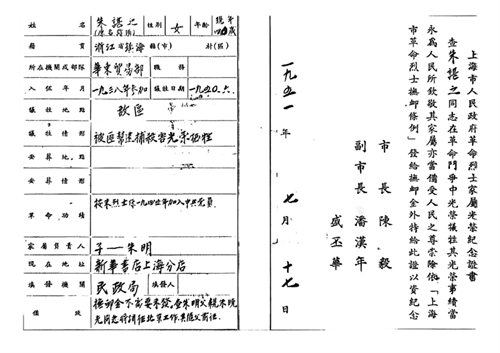 上海市人民政府革命烈士家屬光榮紀念證書
查朱諶之同志在革命鬥爭中光榮犧牲其光榮事蹟當
永為人民所欽敬其家屬亦當備受人民之尊崇除依「上海
市革命烈士撫卹條例」發給撫卹金外特給此證以資紀念
市長 陳毅
副市長 潘漢年
盛丕華
一九五一年七月十七日
姓名 朱諶之 性別 女 年齡 現年 歲
籍貫 浙江省鎮海縣(市) 村(區)
所在機關或部隊 華東貿易部 職務
入伍年月 一九三八年參加 犧牲日期 一九五〇.六.
犧牲地點 敵區
犧牲情形 被匪幫逮捕被害光榮犧牲
安葬地點
安葬情形
革命功績 按朱烈士係一九四五年加入中共黨員
家屬負責人 子—朱明
現在地址 新華書店上海分店
填發機關 民政局 填發人
備考 撫卹金不需要來發,查朱明父親朱曉
光同志